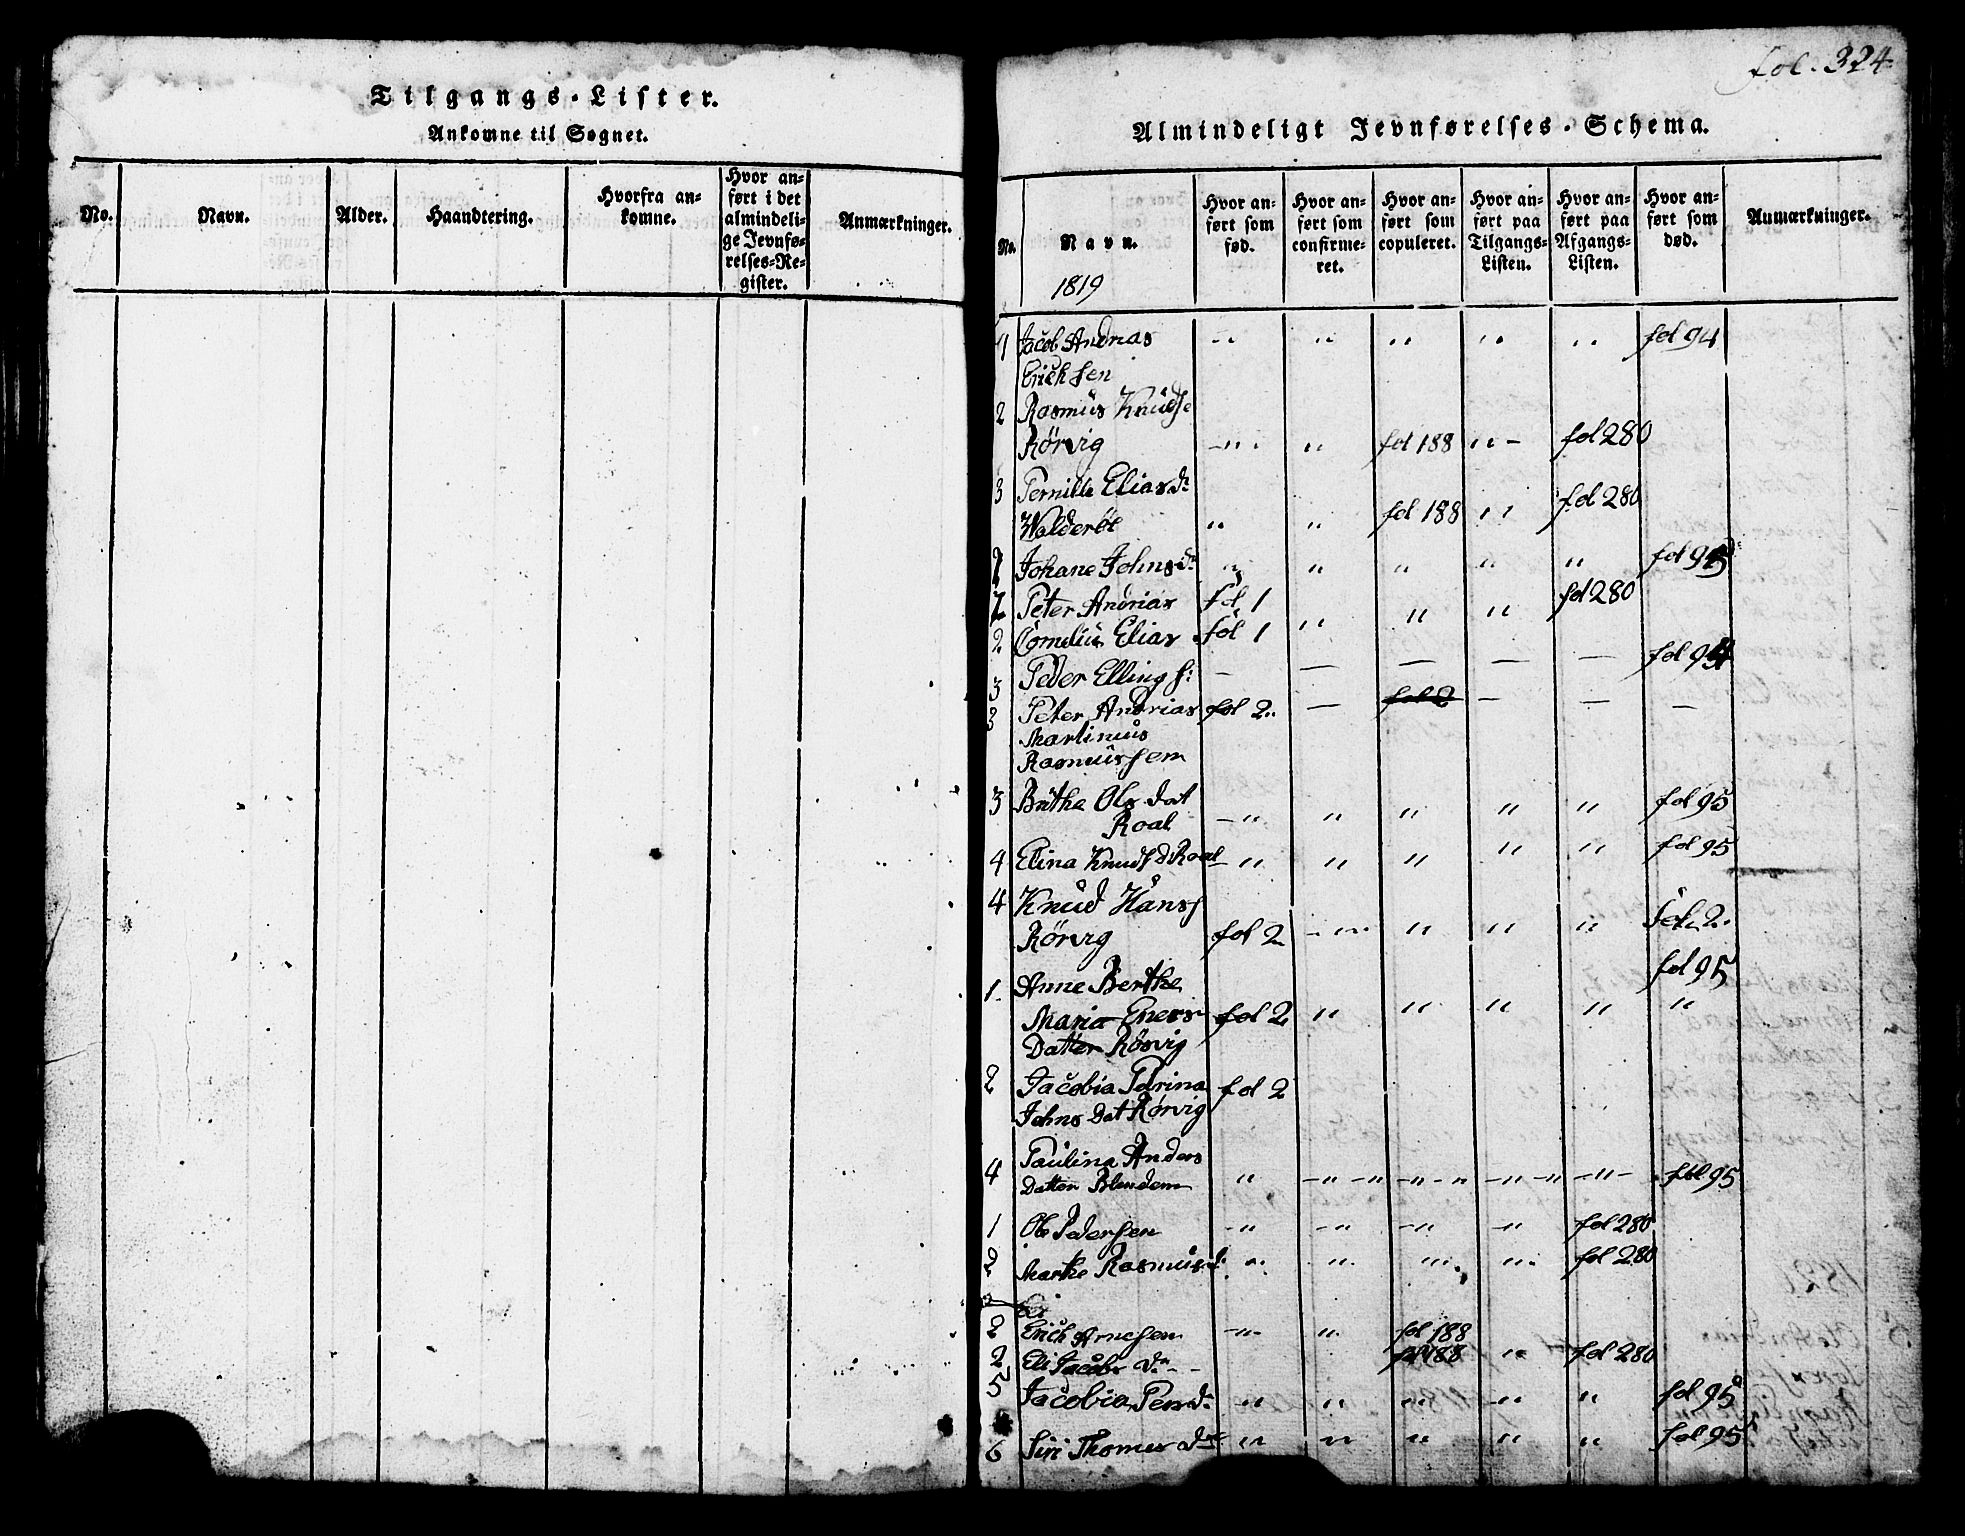 Tilgangs-Lister.
Ankomne til Sognet.
No. Navn. Alder. Haandtering. Hvorfra an-
komne. Hvor an-
ført i det
almindeli-
ge Jevnfø-
relses-Re-
gister. Anmærkninger.
fol. 324
Almindeligt Jevnførelses-Schema.
No. Navn. Hvor an-
ført som
fød. Hvor an-
ført som
confirme-
ret. Hvor an-
ført som
copuleret. Hvor an-
ført paa
Tilgangs-
Listen. Hvor an-
ført paa
Afgangs-
Listen. Hvor an-
ført som
død. Anmærkninger.
1819
1 Jacob Andrias " " " " " fol 94
Erichsen
2 Rasmus Knuds
Rörvig " " fol 188 " fol 280
3 Pernille Elias d:
Walderöe " " fol 188 " fol 280
Johane Johns d: " " " " " fol 95
Peter Andrias fol 1 " " " fol 280
2 Cornelius Elias fol 1
3 Peder Elling s: — — — — — fol 94
3 Peter Andrias fol 2 — fol 2 — — —
Martinus
Rasmussem
3 Brithe Ols dat
Roal " " " " " fol 95
4 Elina Knuds d: Roal " " " " " fol 95
4 Knud Hans
Rörvig fol 2 " " " " fol 2.
fol 95
1. Anne Berthe
Maria Eners fol 2 " " " " "
Datter Rösvig
2 Jacobia Petrina fol 2
Johns Dat Rörvig
4 Paulina Anders
Datter Blindem " " " " " fol 95
1 Ole Pedersen " " " " fol 280
2 Marthe Rasmus d: " " " " fol 280
2 Erich Arnesen " " fol 188
2 Eli Jacobs d: fol 188 " fol 280
5 Jacobia Pers d: " " " " " fol 95
6 Siri Thomes d: " " " " " fol 95